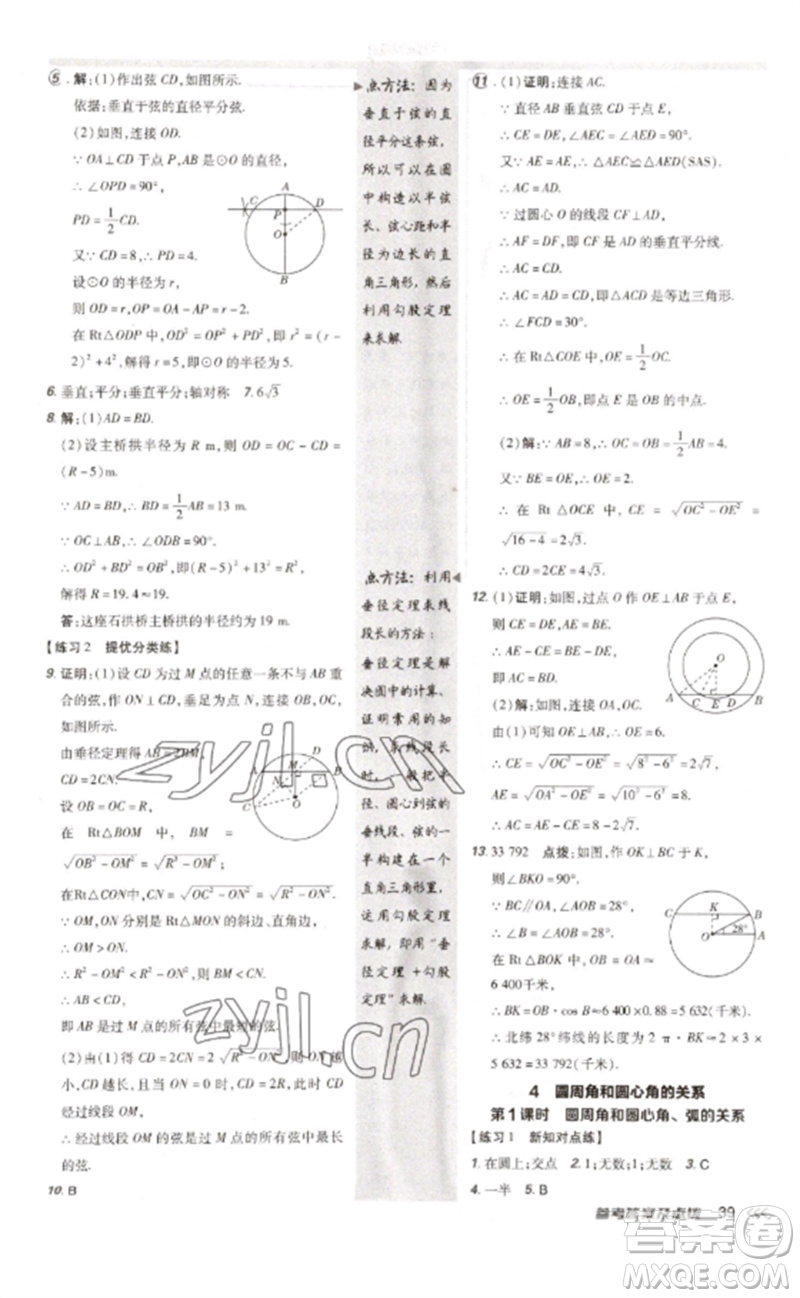 5. 解:(1)作出弦 CD,如图所示.
依据:垂直于弦的直径平分弦.
(2)如图,连接 OD.
∵ OA⊥CD 于点 P,AB 是⊙O 的直径,
∴ ∠OPD=90°,
PD=1/2CD.
又∵ CD=8,∴ PD=4.
设⊙O 的半径为 r,
则 OD=r,OP=OA-AP=r-2.
在 Rt△ODP 中,OD²=OP²+PD²,即 r²=(r-
2)²+4²,解得 r=5,即⊙O 的半径为 5.
6. 垂直;平分;垂直平分;轴对称 7. 6√3
8. 解:(1)AD=BD.
(2)设主桥拱半径为 R m,则 OD=OC-CD=
(R-5)m.
∵ AD=BD,∴ BD=1/2AB=13 m.
∵ OC⊥AB,∴ ∠ODB=90°.
∴ OD²+BD²=OB²,即(R-5)²+13²=R²,
解得 R=19.4≈19.
答:这座石拱桥主桥拱的半径约为 19 m.
【练习2 提优分类练】
9. 证明:(1)设 CD 为过 M 点的任意一条不与 AB 重
合的弦,作 ON⊥CD,垂足为点 N,连接 OB,OC,
如图所示.
由垂径定理得 AB=2BM,
CD=2CN.
设 OB=OC=R.
在 Rt△BOM 中, BM=
√(OB²-OM²)=√(R²-OM²),
在Rt△CON中,CN=√(OC²-ON²)=√(R²-ON²).
∵ OM,ON 分别是 Rt△MON 的斜边、直角边,
∴ OM>ON.
∴ R²-OM²<R²-ON².
∴ BM<CN. ∴ AB<CD,
即 AB 是过 M 点的所有弦中最短的弦.
(2)由(1)得 CD=2CN=2√(R²-ON²),ON 越
小,CD 越长,且当 ON=0 时,CD=2R,此时 CD
经过线段 OM.
∴ 经过线段 OM 的弦是过 M 点的所有弦中最长
的弦.
10. B
点方法:因为
垂直于弦的直
径平分这条弦,
所以可以在圆
中构造以半弦
长、弦心距和半
径为边长的直
角三角形,然后
利用勾股定理
来求解.
点方法:利用
垂径定理求线
段长的方法:
垂径定理是解
决圆中的计算、
证明常用的知
识,求线段长
时,一般把半
径、圆心到弦的
垂线段、弦的一
半构建在一个
直角三角形里,
运用勾股定理
求解,即用“垂
径定理+勾股
定理”求解.
11. (1)证明:连接 AC.
∵ 直径 AB 垂直弦 CD 于点 E,
∴ CE=DE,∠AEC=∠AED=90°.
又∵ AE=AE,∴ △AEC≌△AED(SAS).
∴ AC=AD.
∵ 过圆心 O 的线段 CF⊥AD,
∴ AF=DF,即 CF 是 AD 的垂直平分线.
∴ AC=CD. ∴ AC=AD=CD.
∴ △ACD 是等边三角形.
∴ ∠FCD=30°.
∴ 在 Rt△COE 中,OE=1/2OC.
∴ OE=1/2OB,即点 E 为 OB 的中点.
(2)解:∵ AB=8,∴ OC=OB=1/2AB=4.
又∵ BE=OE,∴ OE=2.
∴ 在 Rt △OCE 中, CE = √(OC²-OE²) =
√(16-4)=2√3.
∴ CD=2CE=4√3.
12. (1)证明:如图,过点 O 作 OE⊥AB 于点 E,
则 CE=DE,AE=BE.
∴ AE-CE=BE-DE,
即 AC=BD.
(2)解:如图,连接 OA,OC.
由(1)可知 OE⊥AB,∴ OE=6.
∴ CE=√(OC²-OE²)=√(8²-6²)=2√7,
AE=√(OA²-OE²)=√(10²-6²)=8.
∴ AC=AE-CE=8-2√7.
13. 33 792 点拨:如图,作 OK⊥BC 于 K,
则∠BKO=90°.
∵ BC∥OA,∠AOB=28°,
∴ ∠B=∠AOB=28°.
∵ 在 Rt△BOK 中,OB=
6 400千米,
∴ BK=OB·cos B≈6 400×0.88=5 632(千米).
∴ 北纬 28°纬线的长度为 2π·BK≈2×3×
5 632=33 792(千米).
4 圆周角和圆心角的关系
第1课时 圆周角和圆心角、弧的关系
【练习1 新知对点练】
1. 在圆上;交点 2. 1;无数;1;无数 3. C
4. 一半 5. B
参考答案及点拨 39
zyjl.cn
zyjl.cn
答案圈
MXQE.COM